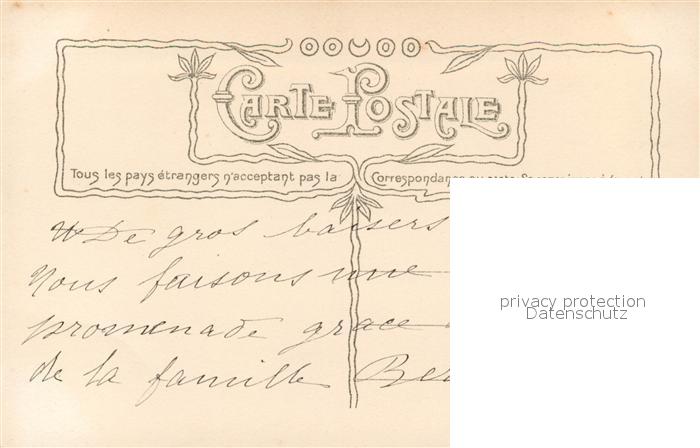 CARTE POSTALE
Tous les pays étrangers n'acceptant pas la Correspondance au
De gros baisers
Nous faisons une
promenade grace
de la famille
privacy protection
Datenschutz